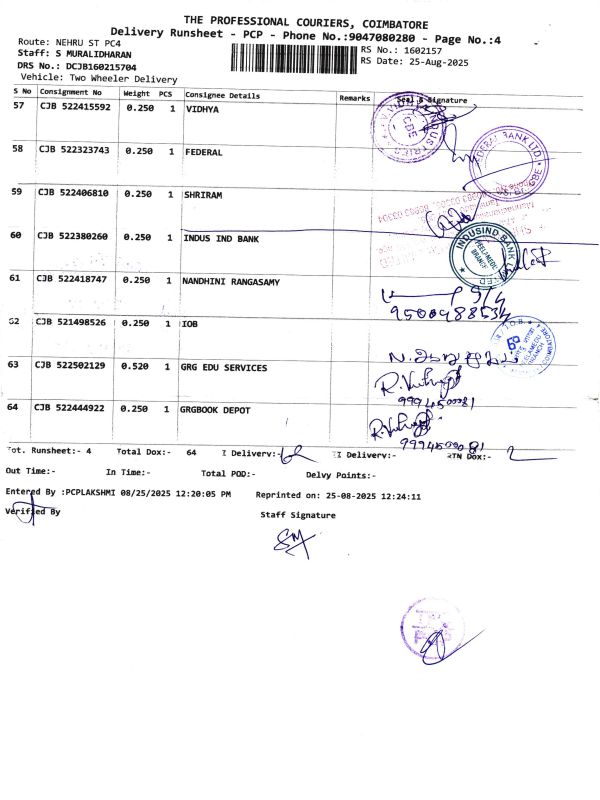 THE PROFESSIONAL COURIERS, COIMBATORE
Delivery Runsheet - PCP - Phone No.:9047080280 - Page No.:4
Route: NEHRU ST PC4
Staff: S MURALIDHARAN
DRS No.: DCJB160215704
Vehicle: Two Wheeler Delivery
RS No.: 1602157
RS Date: 25-Aug-2025
S No Consignment No Weight PCS Consignee Details Remarks Seal & Signature
57 CJB 522415592 0.250 1 VIDHYA
58 CJB 522323743 0.250 1 FEDERAL
FEDERAL BANK LTD.
59 CJB 522406810 0.250 1 SHRIRAM
60 CJB 522380260 0.250 1 INDUS IND BANK
INDUSIND BANK LIMITED
PEELAMEDU
BRANCH
61 CJB 522418747 0.250 1 NANDHINI RANGASAMY
9500488534
62 CJB 521498526 0.250 1 IOB
63 CJB 522502129 0.520 1 GRG EDU SERVICES
64 CJB 522444922 0.250 1 GRGBOOK DEPOT
Tot. Runsheet:- 4 Total Dox:- 64 I Delivery:- II Delivery:- RTN Dox:-
Out Time:- In Time:- Total POD:- Delvy Points:-
Entered By :PCPLAKSHMI 08/25/2025 12:20:05 PM Reprinted on: 25-08-2025 12:24:11
Verified By Staff Signature